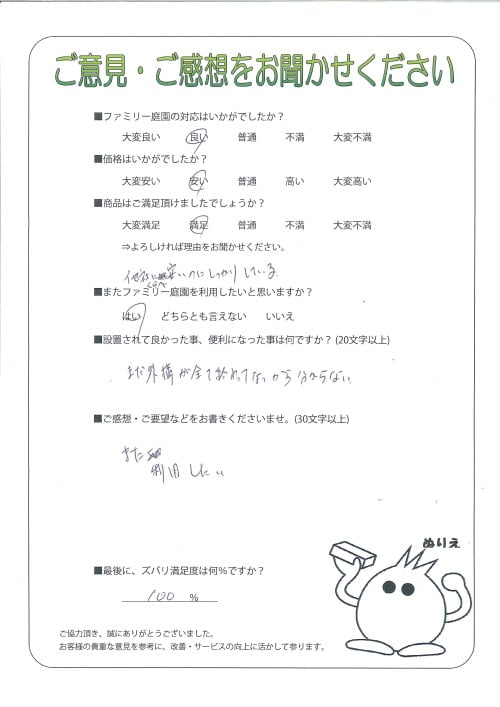 ご意見・ご感想をお聞かせください
■ファミリー庭園の対応はいかがでしたか？
大変良い 良い 普通 不満 大変不満
■価格はいかがでしたか？
大変安い 安い 普通 高い 大変高い
■商品はご満足頂けましたでしょうか？
大変満足 満足 普通 不満 大変不満
⇒よろしければ理由をお聞かせください。
他社に比べ安いのにしっかりしている
■またファミリー庭園を利用したいと思いますか？
はい どちらとも言えない いいえ
■設置されて良かった事、便利になった事は何ですか？(20文字以上)
まだ外構が全て終わってないから分からない
■ご感想・ご要望などをお書きくださいませ。(30文字以上)
また
利用したい
ぬりえ
■最後に、ズバリ満足度は何％ですか？
100 %
ご協力頂き、誠にありがとうございました。
お客様の貴重な意見を参考に、改善・サービスの向上に活かして参ります。